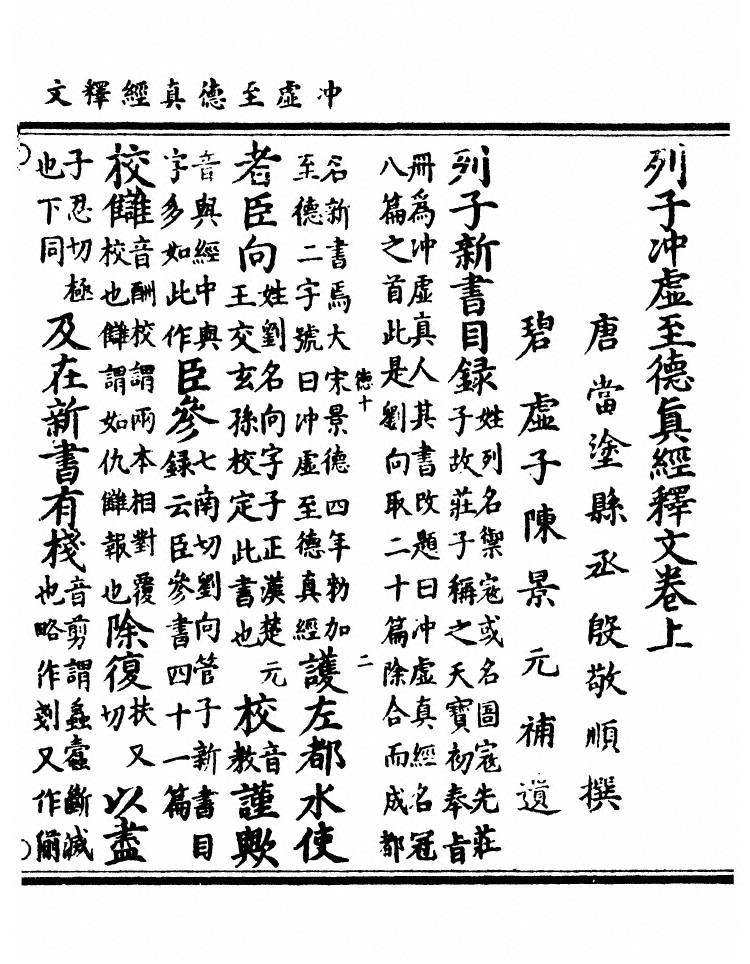 冲虛至德真經釋文
列子冲虛至德真經釋文卷上
唐當塗縣丞殷敬順撰
碧虛子陳景元補遺
列子新書目録姓列名禦寇或名圄寇先莊子故莊子稱之天寶初奉旨
冊爲冲虛真人其書改題曰冲虛真經名冠八篇之首此是劉向取二十篇除合而成都
德十 二
名新書焉大宋景德四年勑加至德二字號曰冲虛至德真經護左都水使
者臣向姓劉名向字子正漢楚元王交玄孫校定此書也校音教謹歟
音與經中與字多如此作臣參七南切劉向管子新書目録云臣參書四十一篇
校讎音酬校謂兩本相對覆校也讎謂如仇讎報也除復扶又切以盡
子忍切極也下同及在新書有棧音剪謂蠡蠹斷滅也略作剗又作